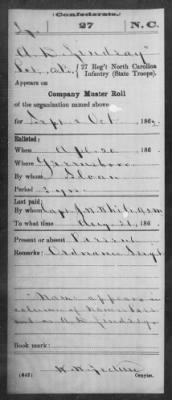 (Confederate.)
27 N.C.
A. D. Lindsay
27 Reg't North Carolina
Infantry (State Troops).
Appears on
Company Muster Roll
of the organization named above
for Sept & Oct, 186
Enlisted:
When Apl. 20, 186
Where Greensboro
By whom Sloan
Period 3 yrs
Last paid:
By whom Capt. J. N. Whit
To what time Aug. 31, 186
Present or absent Present
Remarks: Ordnance Sergt
Name appears in
column of Names
Book mark:
(642)
Copyist.